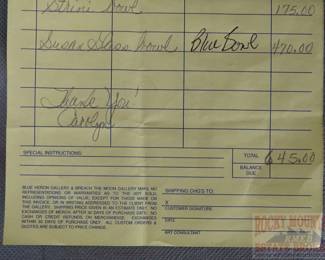 Strini bowl 175.00
Susan Glass bowl Blue Bowl 470.00
Thank You!
Carolyn
SPECIAL INSTRUCTIONS:
TOTAL 645.00
BALANCE DUE
BLUE HERON GALLERY & BREACH THE MOON GALLERY MAKE NO
REPRESENTATIONS OR WARRANTIES AS TO THE ART SOLD,
INCLUDING OPINIONS OF VALUE, EXCEPT FOR THOSE MADE ON
THIS INVOICE, OR IN WRITING ADDRESSED TO THE CLIENT FROM
THE GALLERY. SHIPPING PRICE GIVEN IS AN ESTIMATE ONLY. NO
EXCHANGES OF MERCH. AFTER 30 DAYS OF PURCHASE DATE. NO
CASH OR CREDIT REFUNDS ON MERCHANDISE. EXCHANGES
WITHIN 30 DAYS OF PURCHASE ONLY. ALL CUSTOM ORDERS &
QUOTES ARE SUBJECT TO CHANGE.
SHIPPING CHG'S TO:
X
CUSTOMER SIGNATURE
DATE
ART CONSULTANT
ROCKY MOUNTAIN
ESTATE